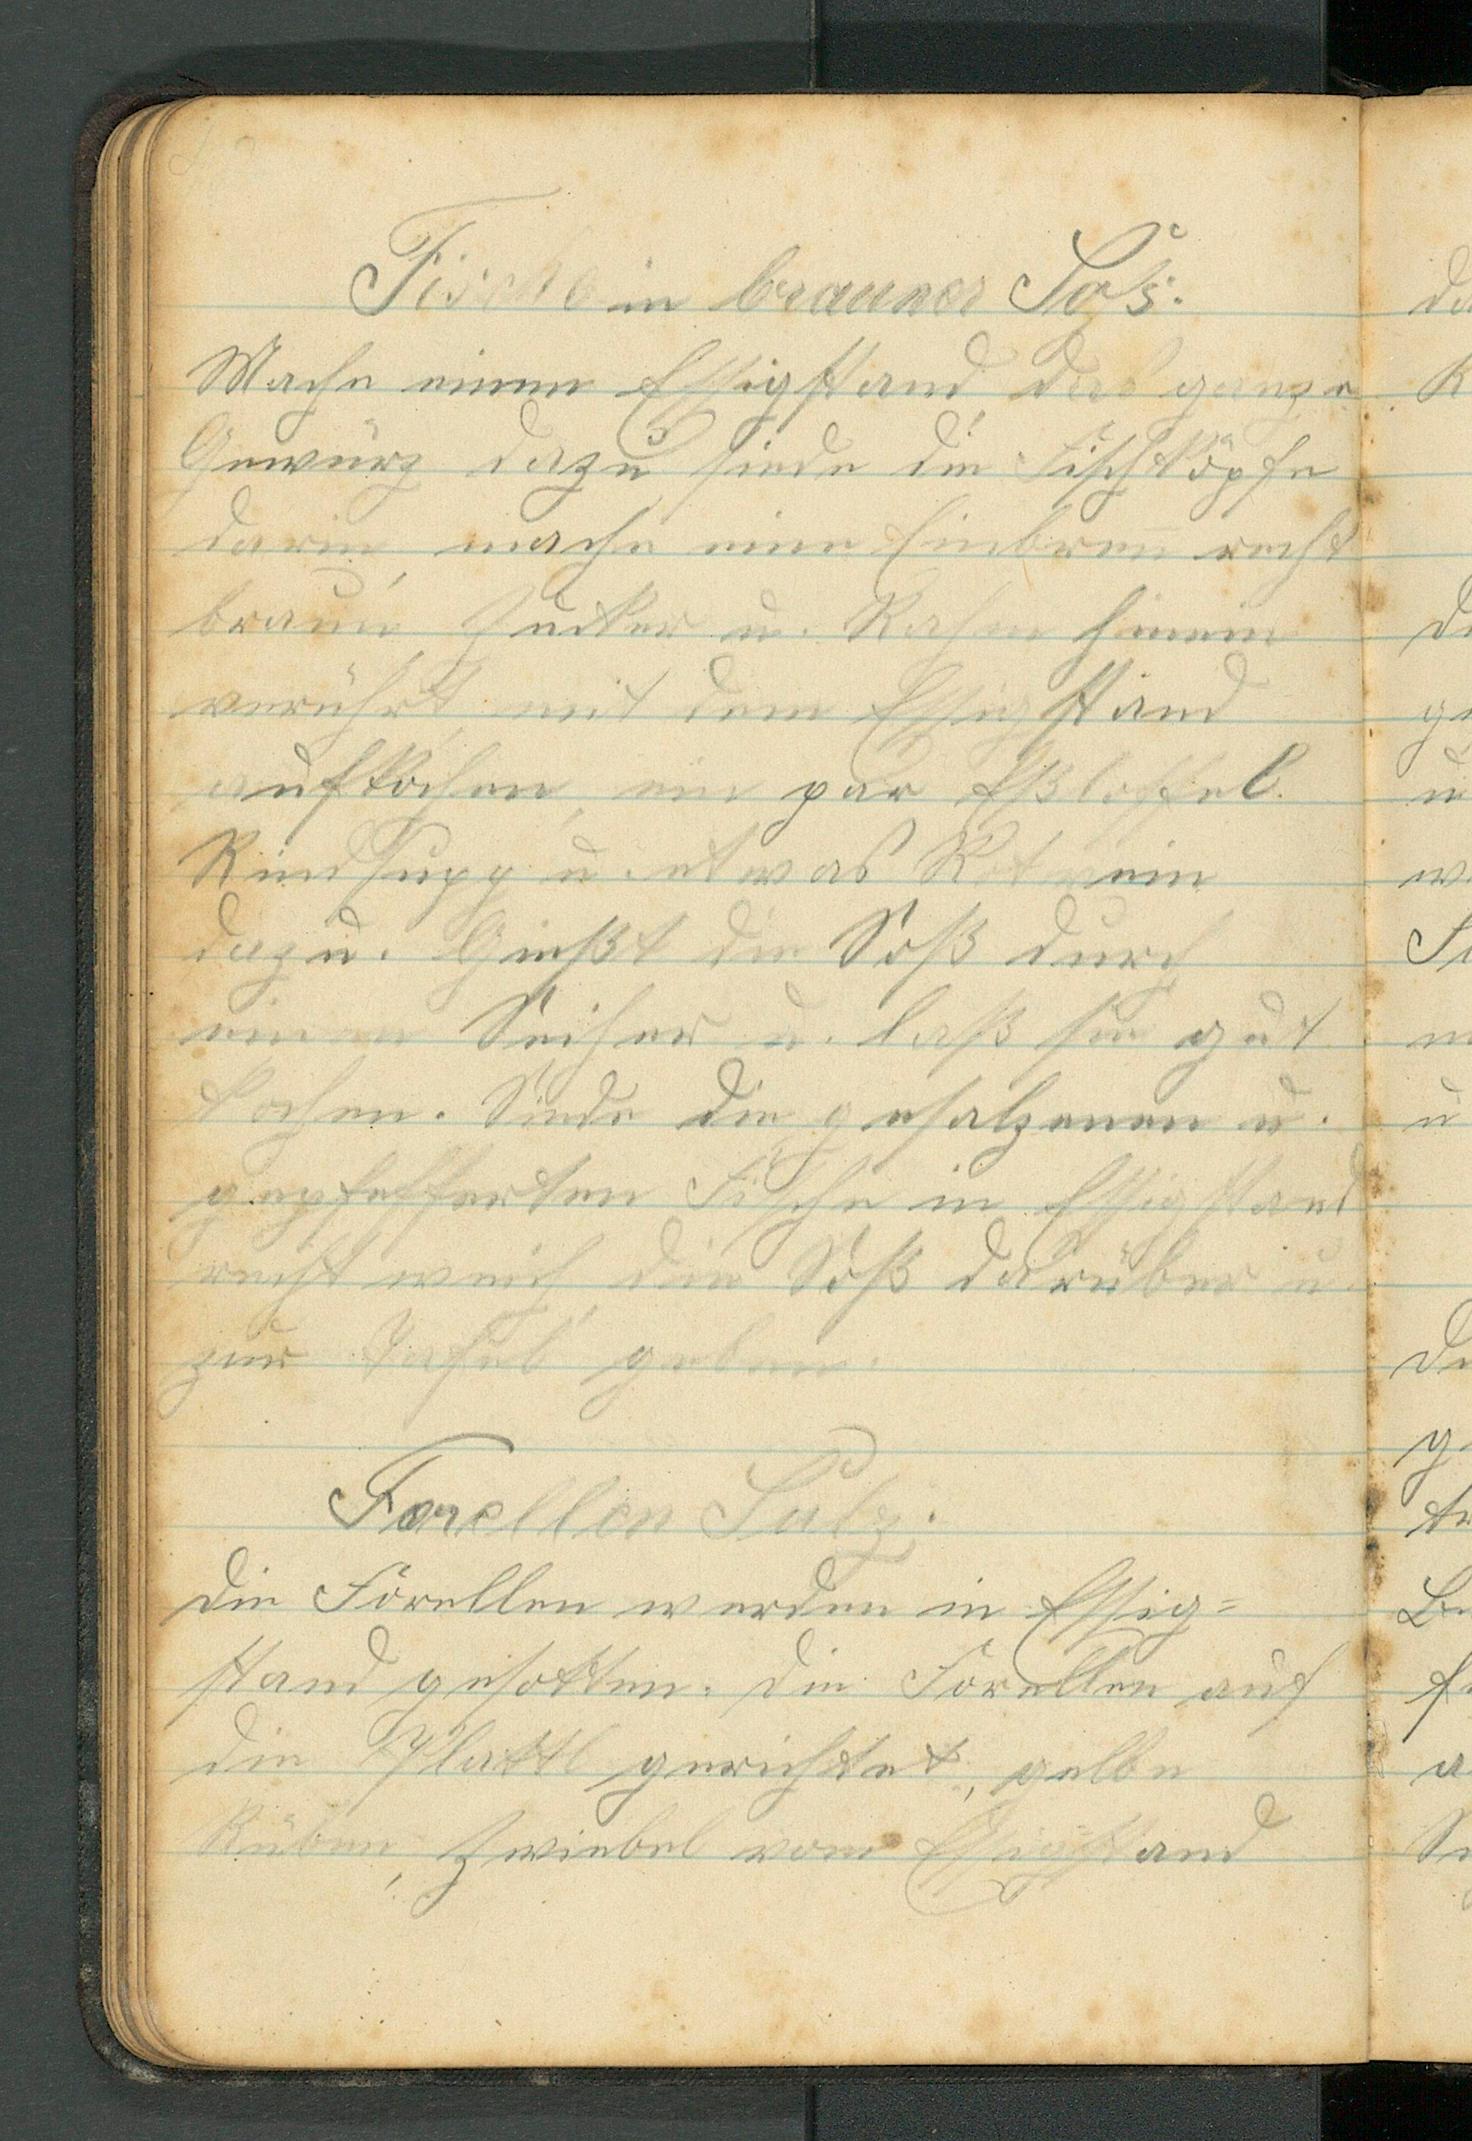 Fische in brauner Soß.
Mache einen Essigstand das ganze
Gewürz dazu siede die Fischköpfe
darin, mache eine Einbrenn recht
braun, Zucker u. Rahm hinein
verrührt, mit dem Essigstand
aufkochen, ein par Eßloffel
Rindsupp u. etwas Rotwein
dazu. Gießt die Soß durch
einen Seiher u. laß sie gut
kochen. Siede die gesalzenen u.
gepfefferten Fische in Essigstand
recht weich, die Soß darüber u.
zur Tafel geben.
Forellen Sulz.
Die Forellen werden in Essig=
stand gesotten. Die Forellen auf
die Plattl gerichtet, gelbe
Rüben, Zwiebel vom Essigstand